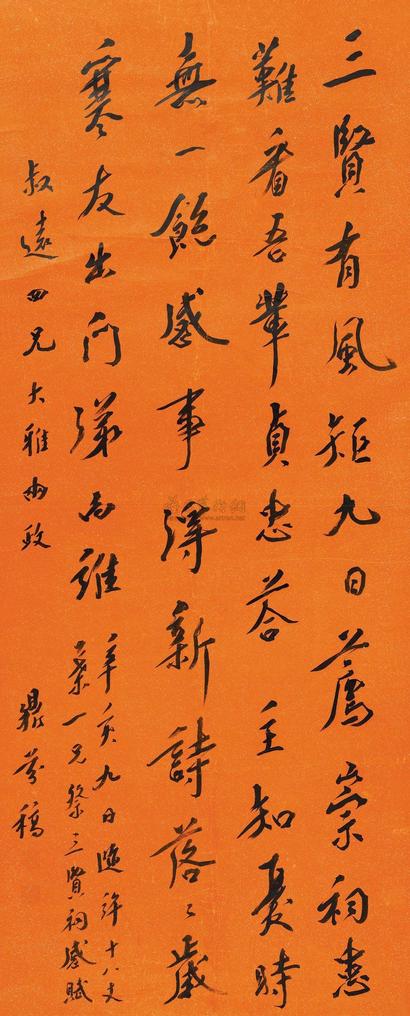 三賢有風矩九日薦崇祠患
難看吾輩貞忠荅主知憂時
無一飽感事得新詩落〻歲
寒友出門誰
辛亥九日隨許十八丈
葉一兄祭三賢祠感賦
叔遠四兄大雅政
鼎芬稿